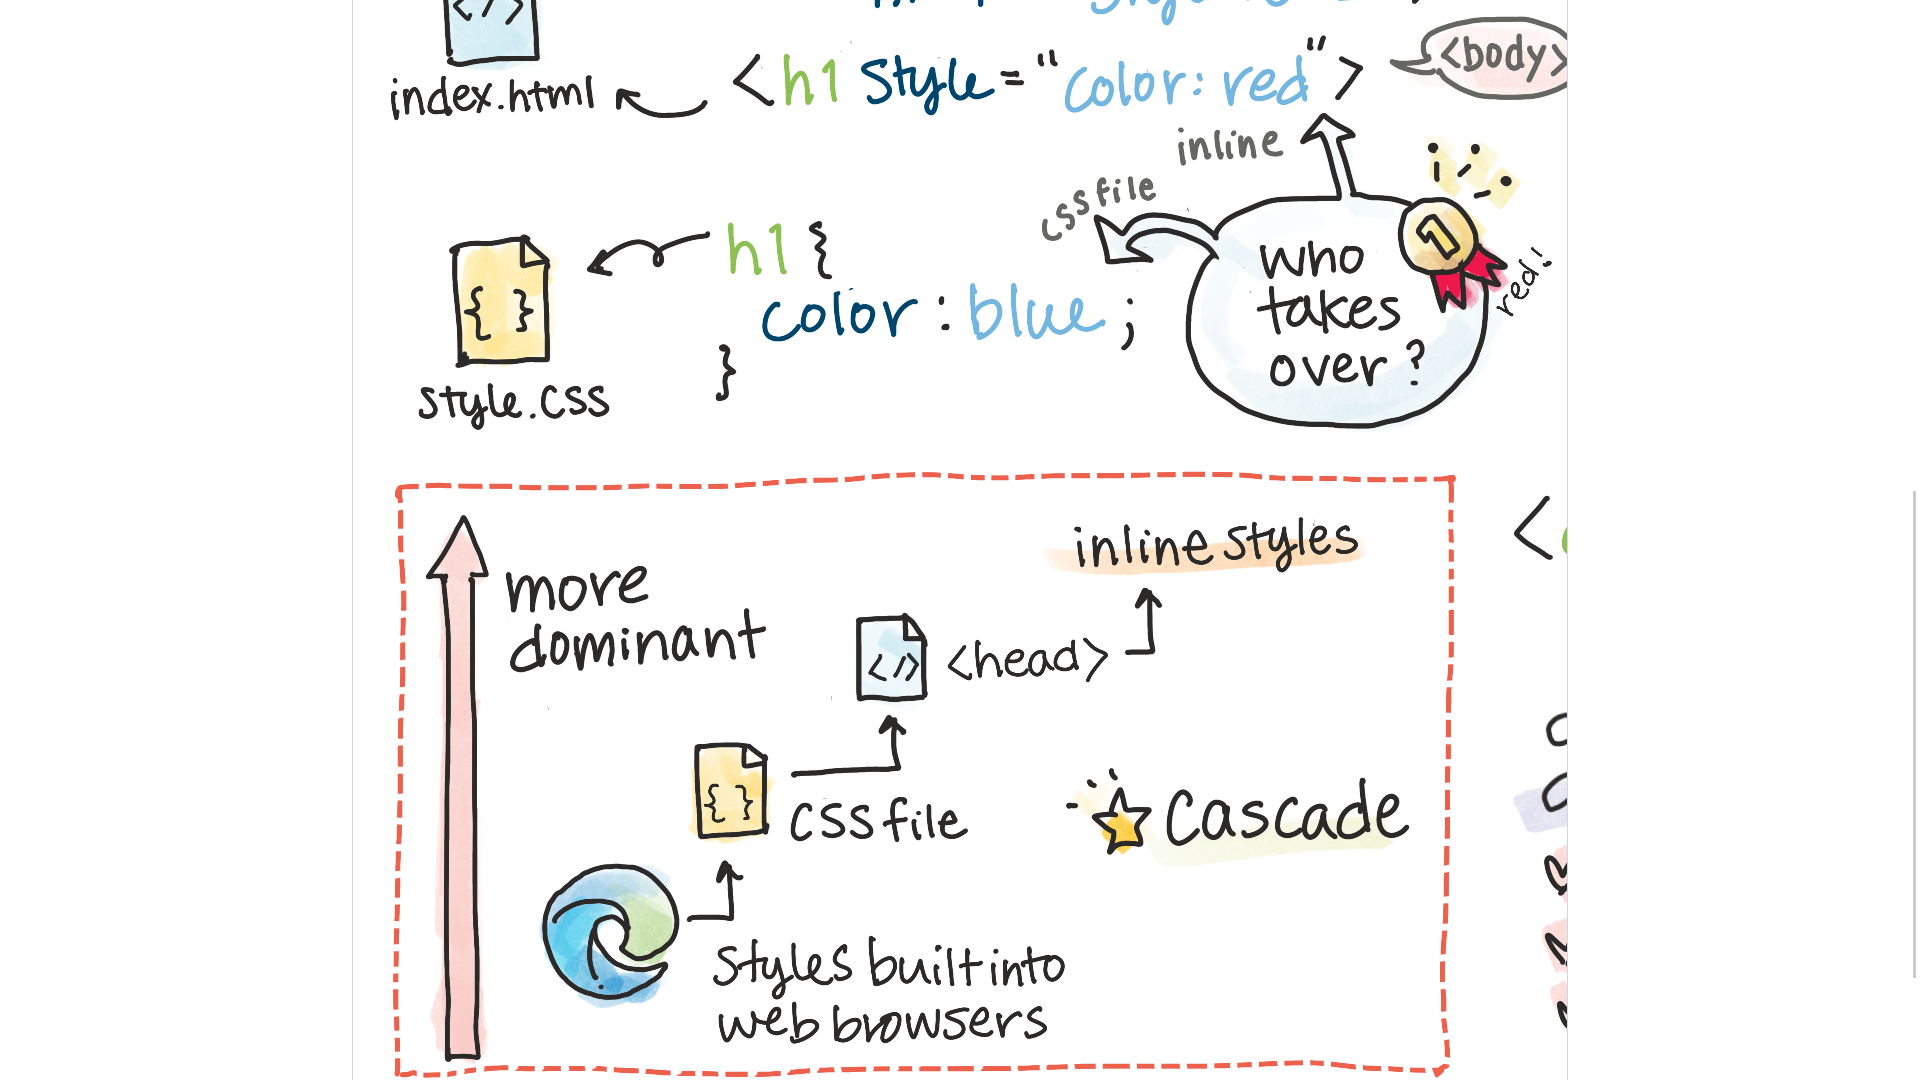 </>
index.html
<h1 style="color: red">
<body>
inline
css file
h1 {
color : blue ;
}
{ }
style.css
who
takes
over ?
1
red!
more
dominant
inline styles
</>
<head>
{ }
css file
Cascade
styles built into
web browsers
<